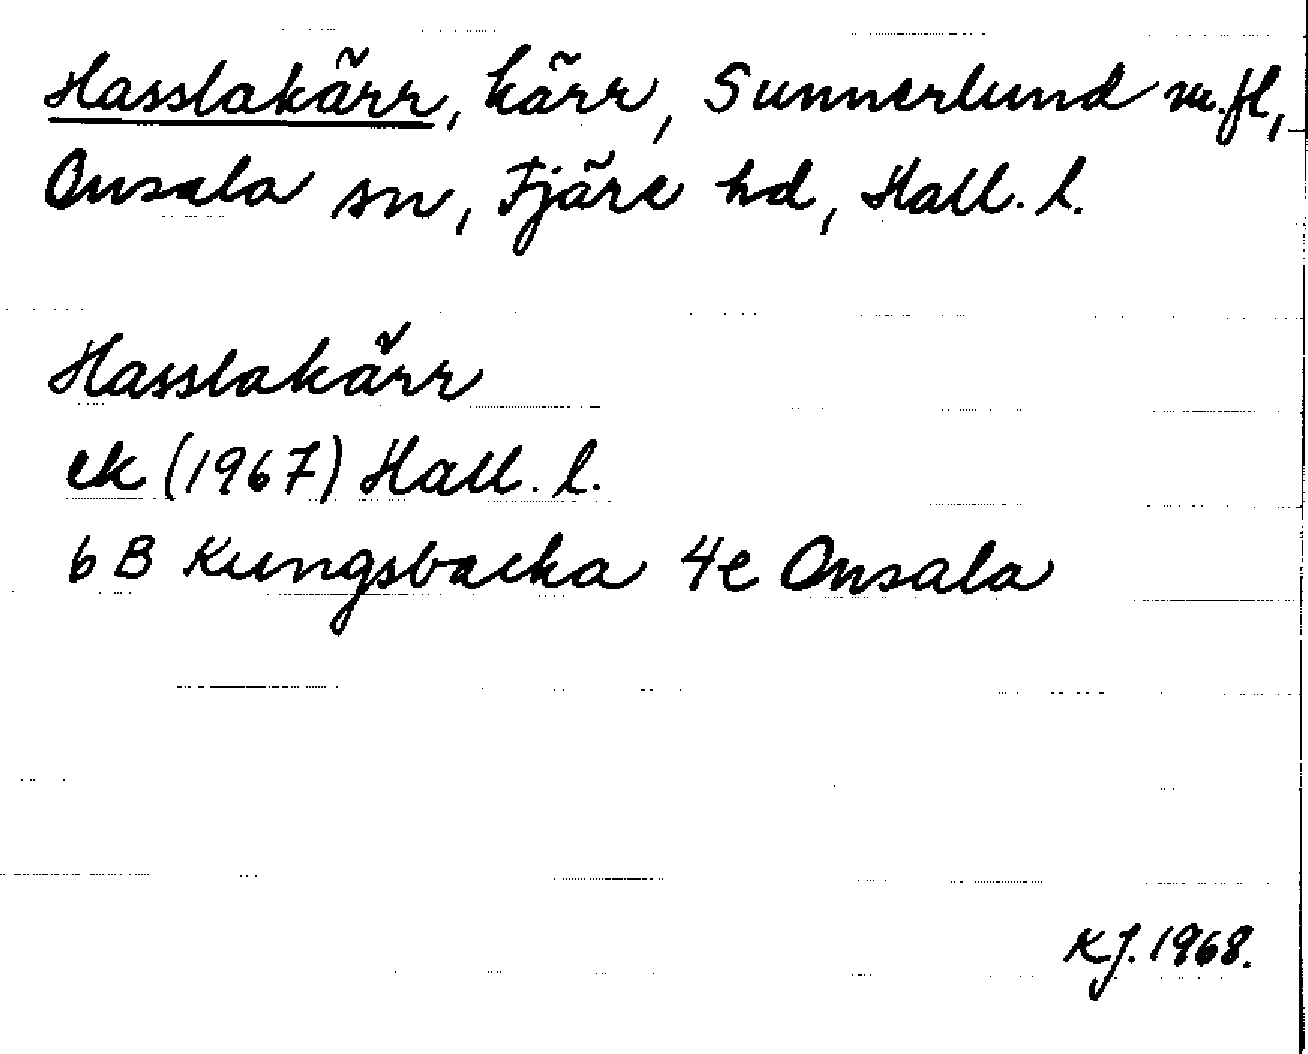 Hasslakärr, kärr, Sunnerlund m.fl,
Onsala sn, Fjäre hd, Hall. l.
Hasslakärr
ek (1967) Hall. l.
6 B Kungsbacka 4e Onsala
KJ. 1968.